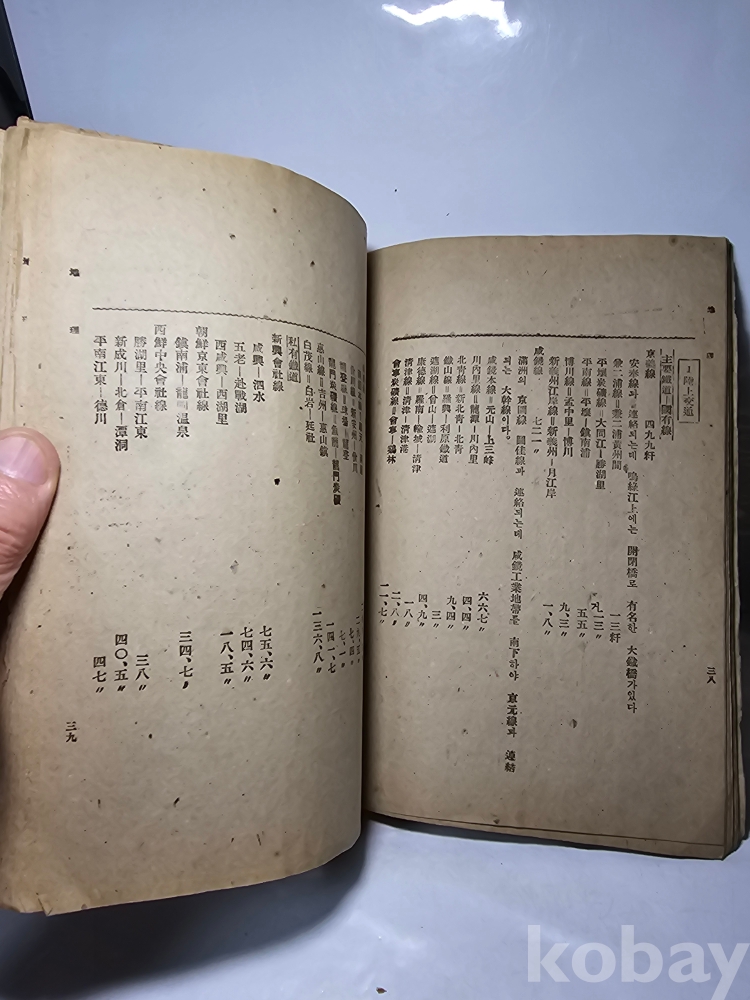 地理
三八
1 陸上交通
主要鐵道―國有線
京義線 四九九粁
安奉線과 連絡되는데 鴨綠江上에는 開閉橋로 有名한 大鐵橋가있다
兼二浦線=兼二浦黃州間 一三粁
平壤炭礦線=大同江―勝湖里
平南線=平壤―鎭南浦 五五〃
博川線=孟中里―博川 九、三〃
新義州江岸線=新義州―江岸 一、八〃
咸鏡線 七二一〃
滿洲의 京圖線 圖佳線과 連絡되는데 咸鏡工業地帶를 南下하야 京元線과 連結
되는 大幹線이다.
咸鏡本線=元山―上三峰 六六七〃
川內里線=龍潭―川內里 四、四〃
北靑線=新北靑―北靑 九、四〃
鐵山線=羅興―利原鐵道 三〃
遮湖線=曾山―遮湖 四、九〃
康德線=羅南―輸城―淸津
淸津線=淸津―淸津港 一、八〃
會寧炭礦線=會寧―鷄林 一一、七〃
惠山線=吉州―惠山鎭
白茂線=白岩―延社
私有鐵道
新興會社線
咸興―泗水 七五、六〃
五老―赴戰湖 七四、六〃
西咸興―西湖里 一八、五〃
朝鮮京東會社線
鎭南浦―龍岡溫泉 三四、七〃
西鮮中央會社線
勝湖里―平南江東 三八〃
新成川―北倉―潭洞 四〇、五〃
平南江東―德川 四七〃
地理
三九
kobay